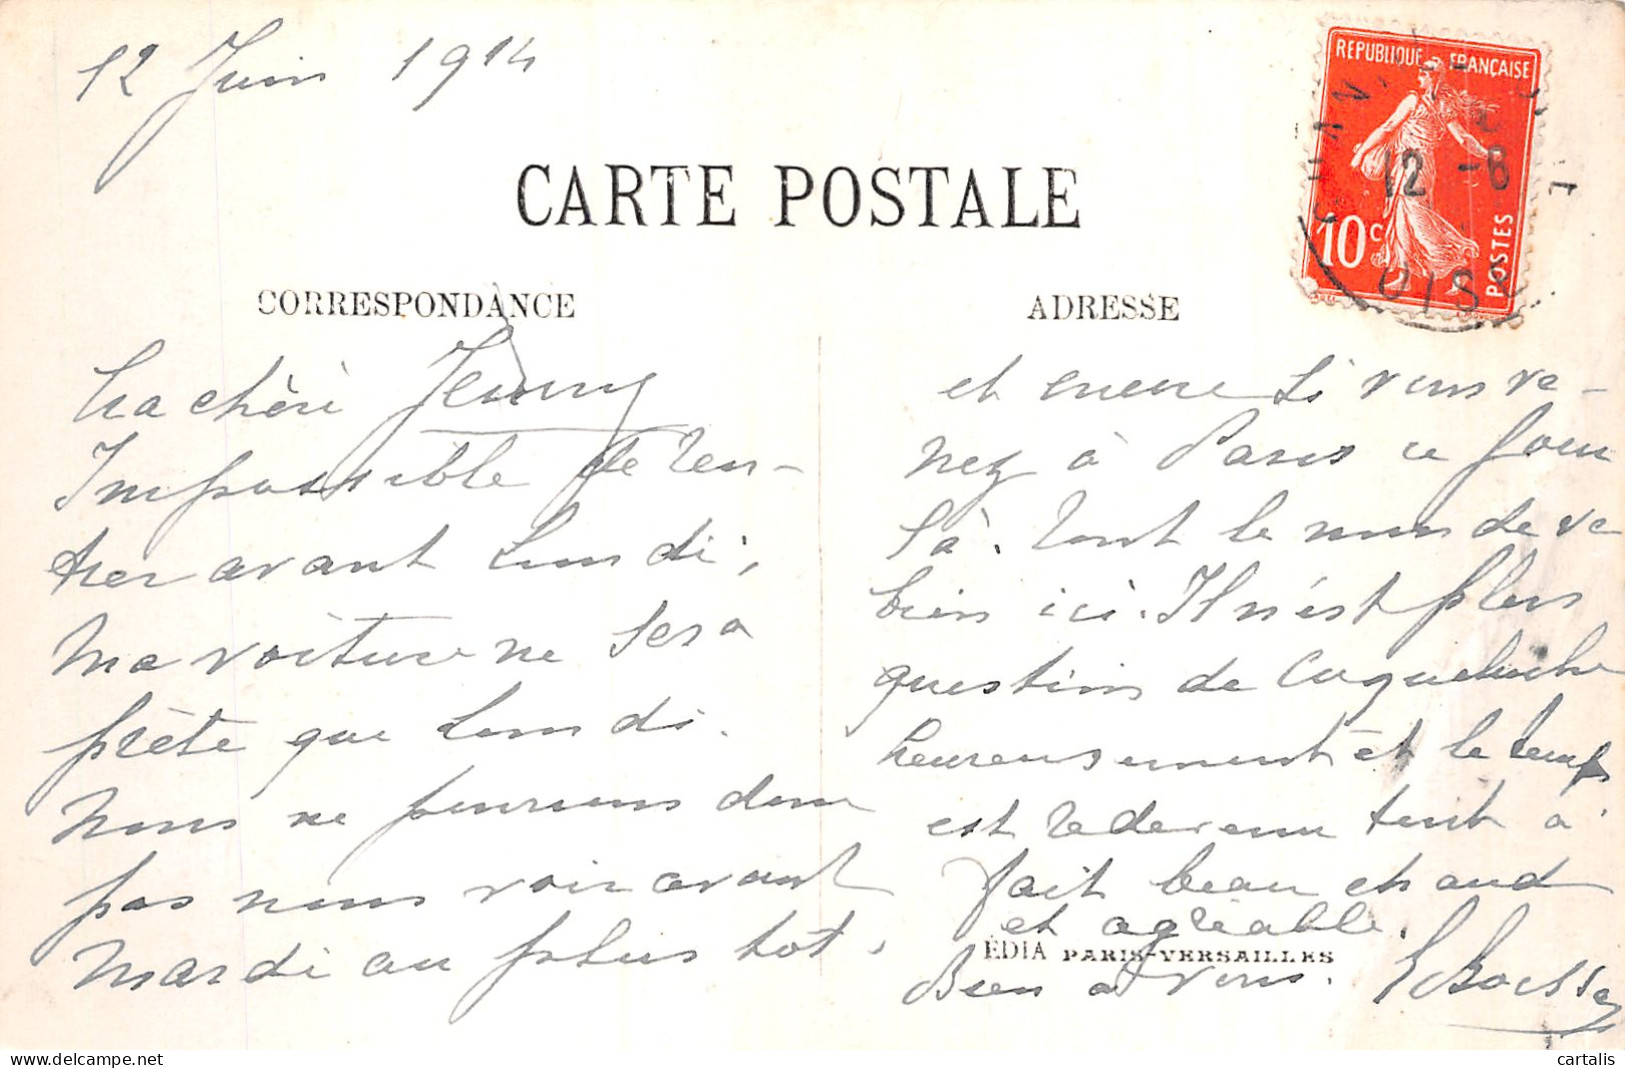 12 Juin 1914
REPUBLIQUE FRANÇAISE
12 -6
10c
POSTES
OISE
CARTE POSTALE
CORRESPONDANCE
ADRESSE
Ma chère Jenny
Impossible de ren-
trer avant Lundi,
Ma voiture ne sera
prète que Lundi.
Nous ne pourrons donc
pas nous voir avant
Mardi au plus tot,
et encore si vous ve-
nez à Paris ce jour
là. Tout le monde va
bien ici. Il n'est plus
question de Coqueluche
heureusement et le temps
est redevenu tout à
fait beau chaud
et agréable.
EDIA PARIS-VERSAILLES
Bien à vous.
cartalis